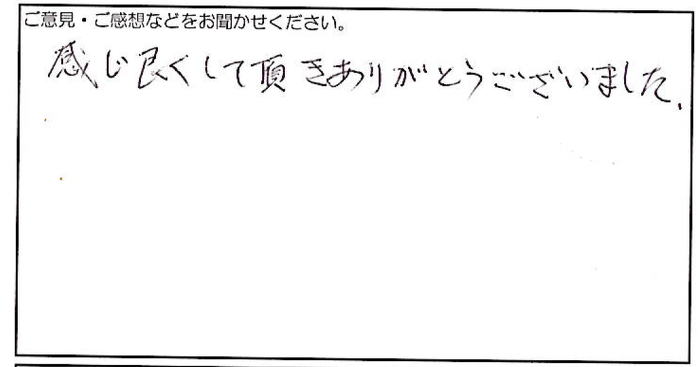 ご意見・ご感想などをお聞かせください。
感じ良くして頂きありがとうございました.